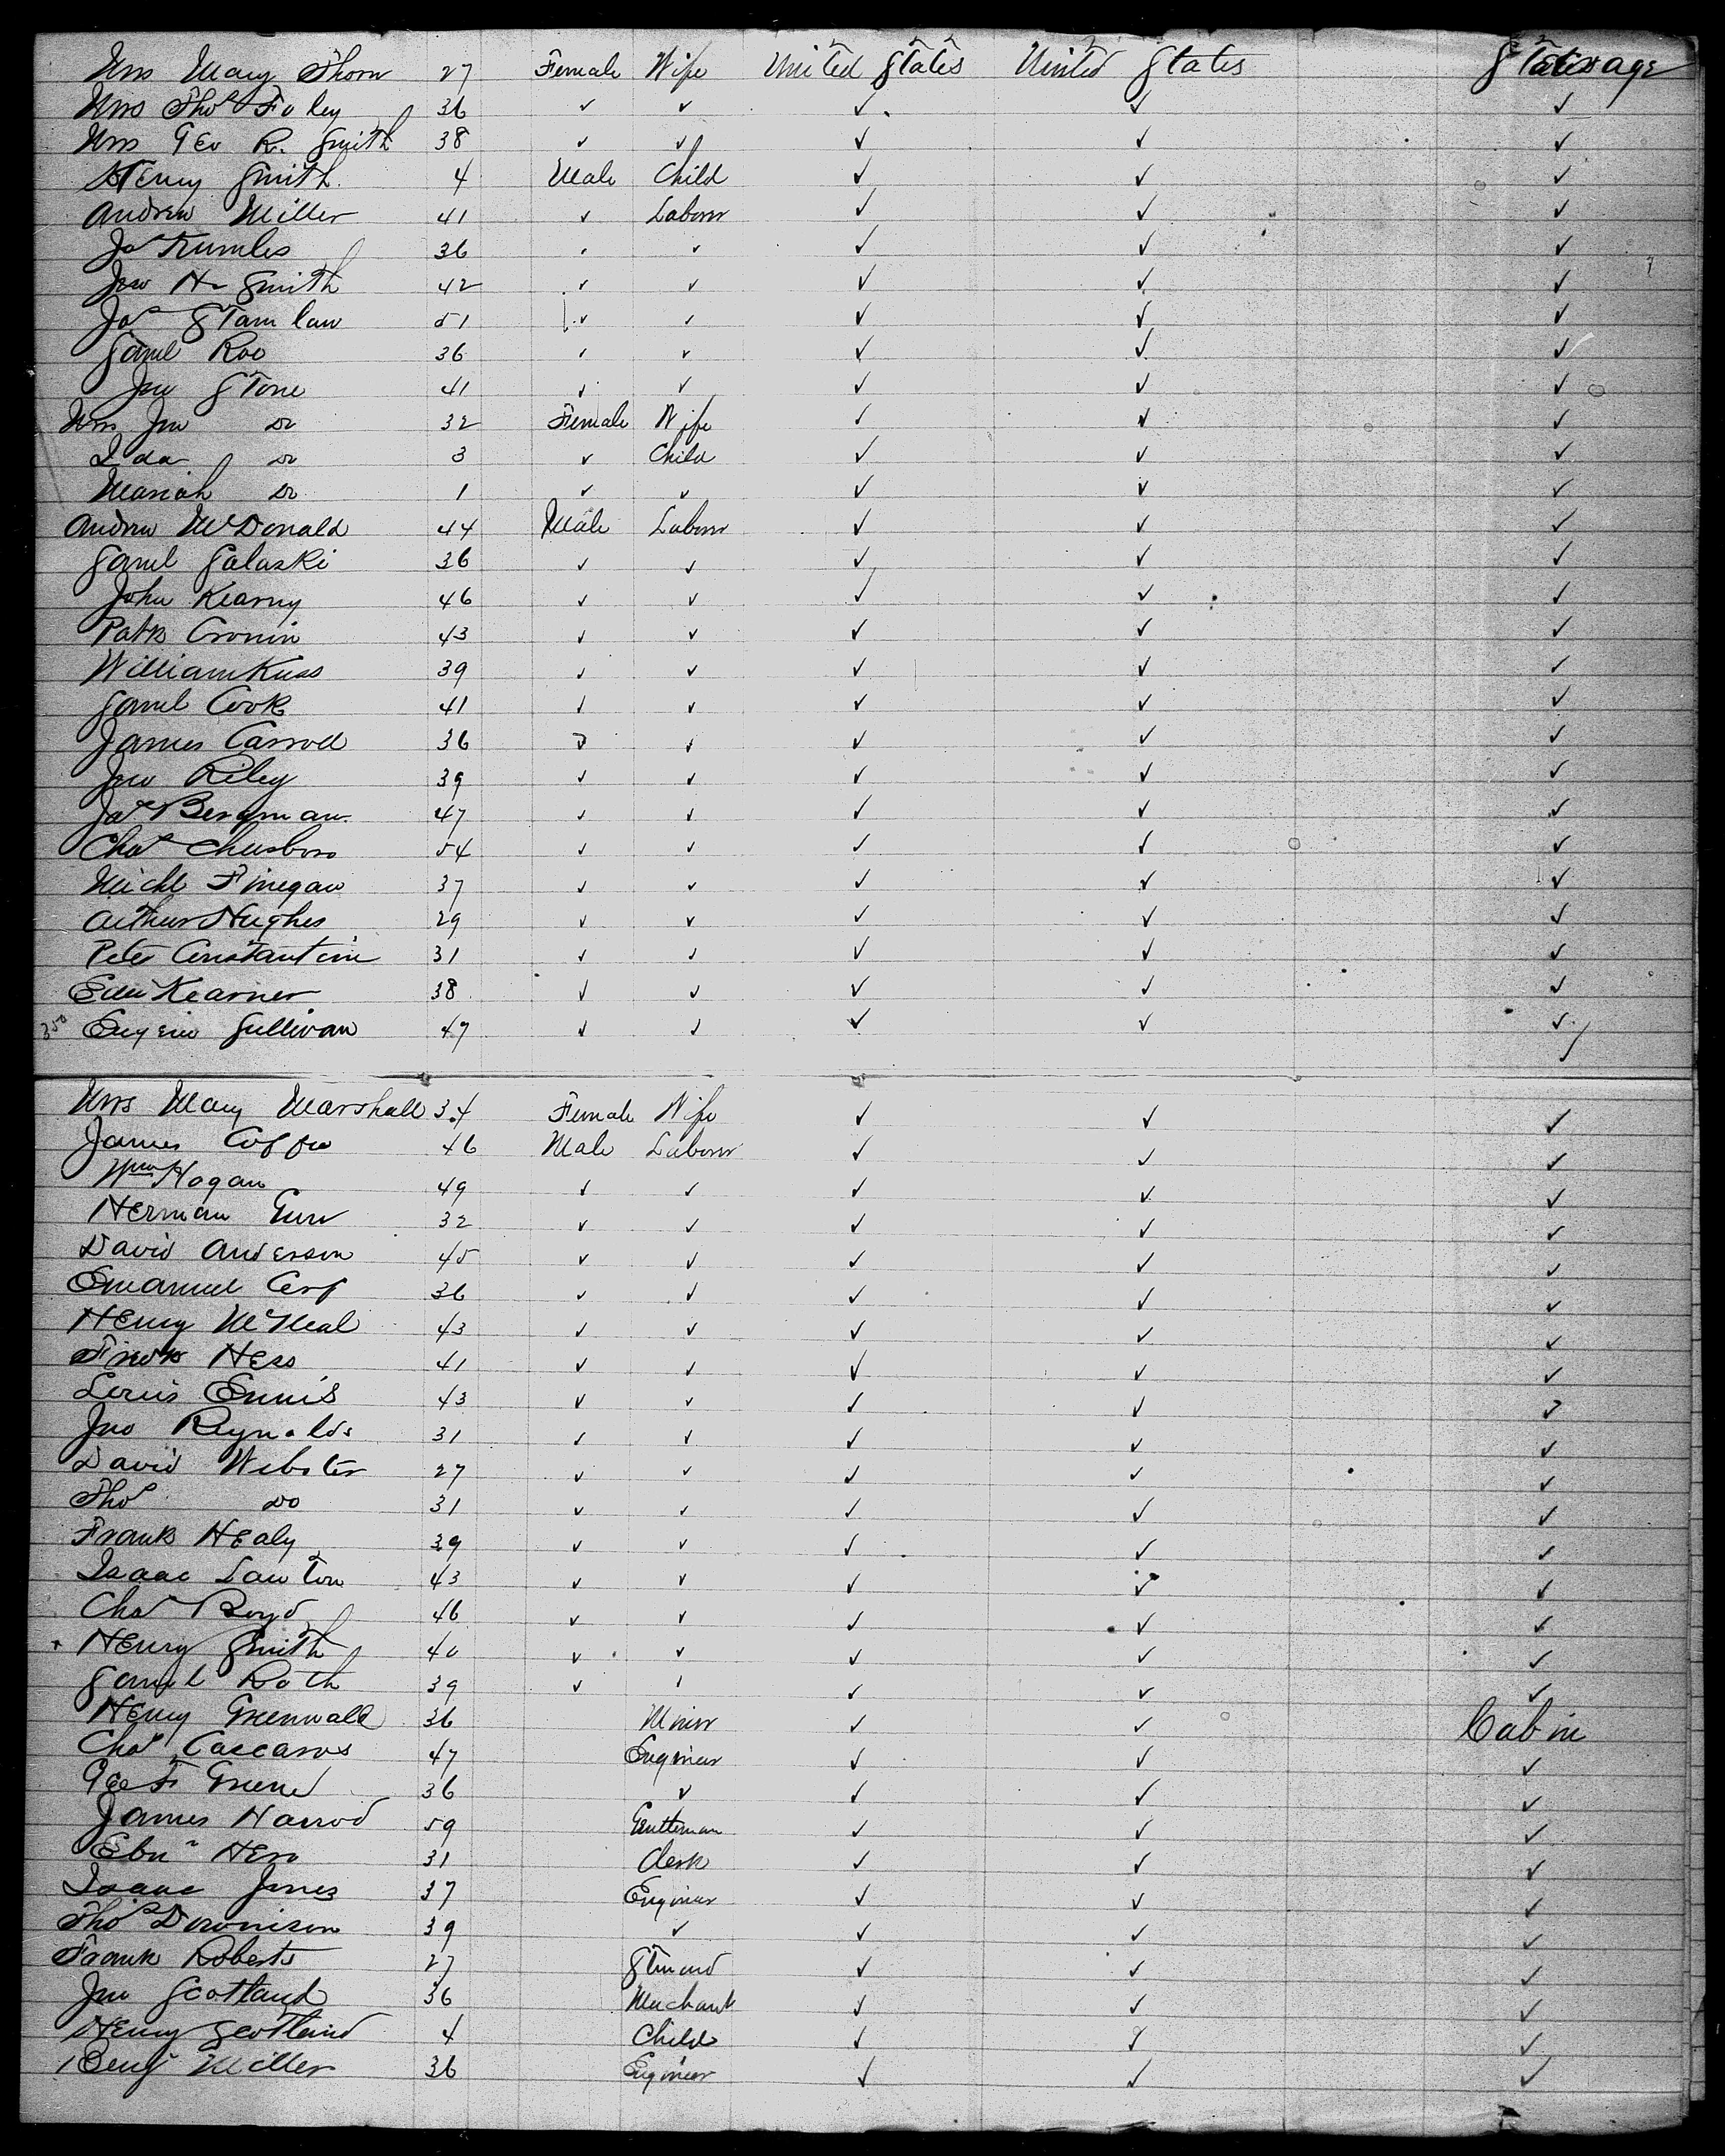 Mrs Mary Thorn 27 Female Wife United States United States Steerage
Mrs Thos Foley 36 ✓ ✓ ✓ ✓ ✓
Mrs Geo R. Smith 38 ✓ ✓ ✓ ✓ ✓
Henry Smith 4 Male Child ✓ ✓ ✓
Andrew Miller 41 ✓ Laborer ✓ ✓ ✓
Jas 36 ✓ ✓ ✓ ✓ ✓
Jno H Smith 42 ✓ ✓ ✓ ✓ ✓
Jas 51 ✓ ✓ ✓ ✓ ✓
Saml Roo 36 ✓ ✓ ✓ ✓ ✓
Jno Stone 41 ✓ ✓ ✓ ✓ ✓
Mrs Jno Do 32 Female Wife ✓ ✓ ✓
Ida Do 3 ✓ Child ✓ ✓ ✓
Mariah Do 1 ✓ ✓ ✓ ✓ ✓
Andrew McDonald 44 Male Laborer ✓ ✓ ✓
Saml Salaski 36 ✓ ✓ ✓ ✓ ✓
John Kearny 46 ✓ ✓ ✓ ✓ ✓
Patk Cronin 43 ✓ ✓ ✓ ✓ ✓
William Kuss 39 ✓ ✓ ✓ ✓ ✓
Saml Cook 41 ✓ ✓ ✓ ✓ ✓
James Carroll 36 ✓ ✓ ✓ ✓ ✓
Jno Riley 39 ✓ ✓ ✓ ✓ ✓
Jas Bergman 47 ✓ ✓ ✓ ✓ ✓
Chas Chesboro 54 ✓ ✓ ✓ ✓ ✓
Michl Finegan 37 ✓ ✓ ✓ ✓ ✓
Arthur Hughes 29 ✓ ✓ ✓ ✓ ✓
Peter Constantine 31 ✓ ✓ ✓ ✓ ✓
Kearner 38 ✓ ✓ ✓ ✓ ✓
350 Eugene Sullivan 47 ✓ ✓ ✓ ✓ ✓
Mrs Mary Marshall 34 Female Wife ✓ ✓ ✓
James Coffee 46 Male Laborer ✓ ✓ ✓
Wm Hogan 49 ✓ ✓ ✓ ✓ ✓
Herman 32 ✓ ✓ ✓ ✓ ✓
David Anderson 45 ✓ ✓ ✓ ✓ ✓
Emanuel Cerf 36 ✓ ✓ ✓ ✓ ✓
Henry McNeal 43 ✓ ✓ ✓ ✓ ✓
Fredk Hess 41 ✓ ✓ ✓ ✓ ✓
Louis Ennis 43 ✓ ✓ ✓ ✓ ✓
Jno Reynolds 31 ✓ ✓ ✓ ✓ ✓
David Webster 27 ✓ ✓ ✓ ✓ ✓
Thos Do 31 ✓ ✓ ✓ ✓ ✓
Frank Healy 39 ✓ ✓ ✓ ✓ ✓
Isaac Lawton 43 ✓ ✓ ✓ ✓ ✓
Chas Boyd 46 ✓ ✓ ✓ ✓ ✓
Henry Smith 40 ✓ ✓ ✓ ✓ ✓
Saml Roth 39 ✓ ✓ ✓ ✓ ✓
Henry Greenwall 36 Miner ✓ ✓ Cabin
Chas 47 Engineer ✓ ✓ ✓
Geo F Greene 36 ✓ ✓ ✓ ✓
James Harrod 59 Gentleman ✓ ✓ ✓
Ebn 31 Clerk ✓ ✓ ✓
Isaac Jones 37 Engineer ✓ ✓ ✓
Thos Downison 39 ✓ ✓ ✓ ✓
Frank Roberts 27 ✓ ✓ ✓
Jno Scotland 36 Merchant ✓ ✓ ✓
Henry Scotland 4 Child ✓ ✓ ✓
Benj Miller 36 Engineer ✓ ✓ ✓